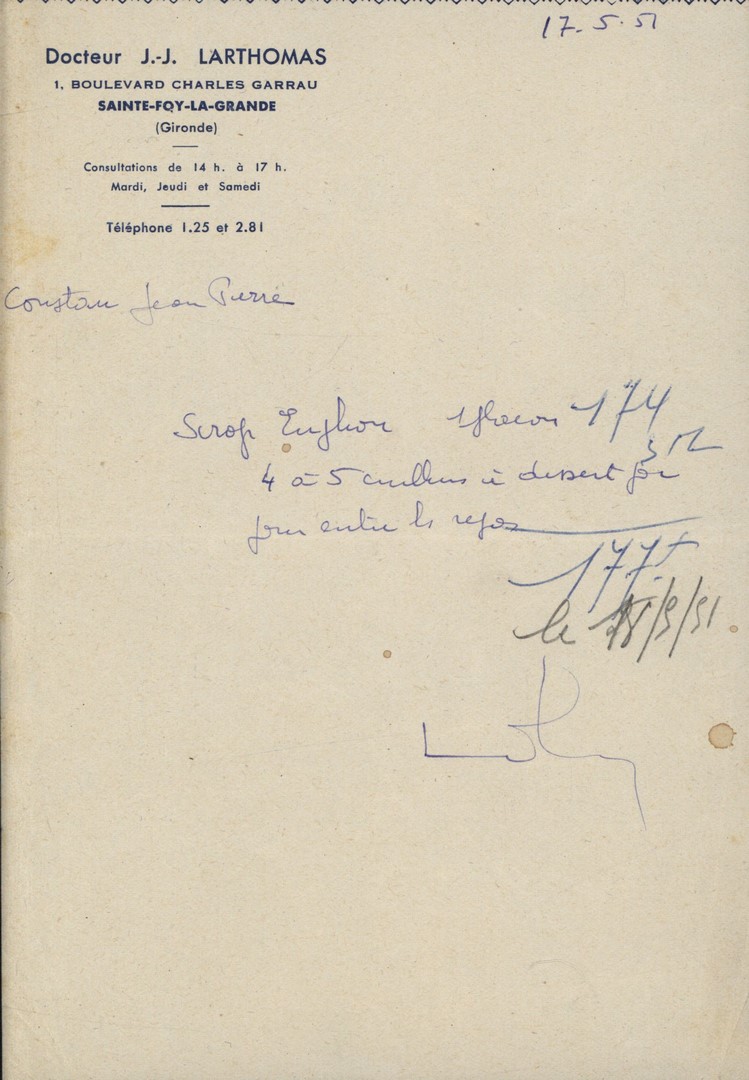 17. 5. 51
Docteur J.-J. LARTHOMAS
1, BOULEVARD CHARLES GARRAU
SAINTE-FOY-LA-GRANDE
(Gironde)
Consultations de 14 h. à 17 h.
Mardi, Jeudi et Samedi
Téléphone 1.25 et 2.81
Jean Pierre
Sirop 1 flacon 174
4 à 5 cuillers à dessert par
jour entre les repas
177
le